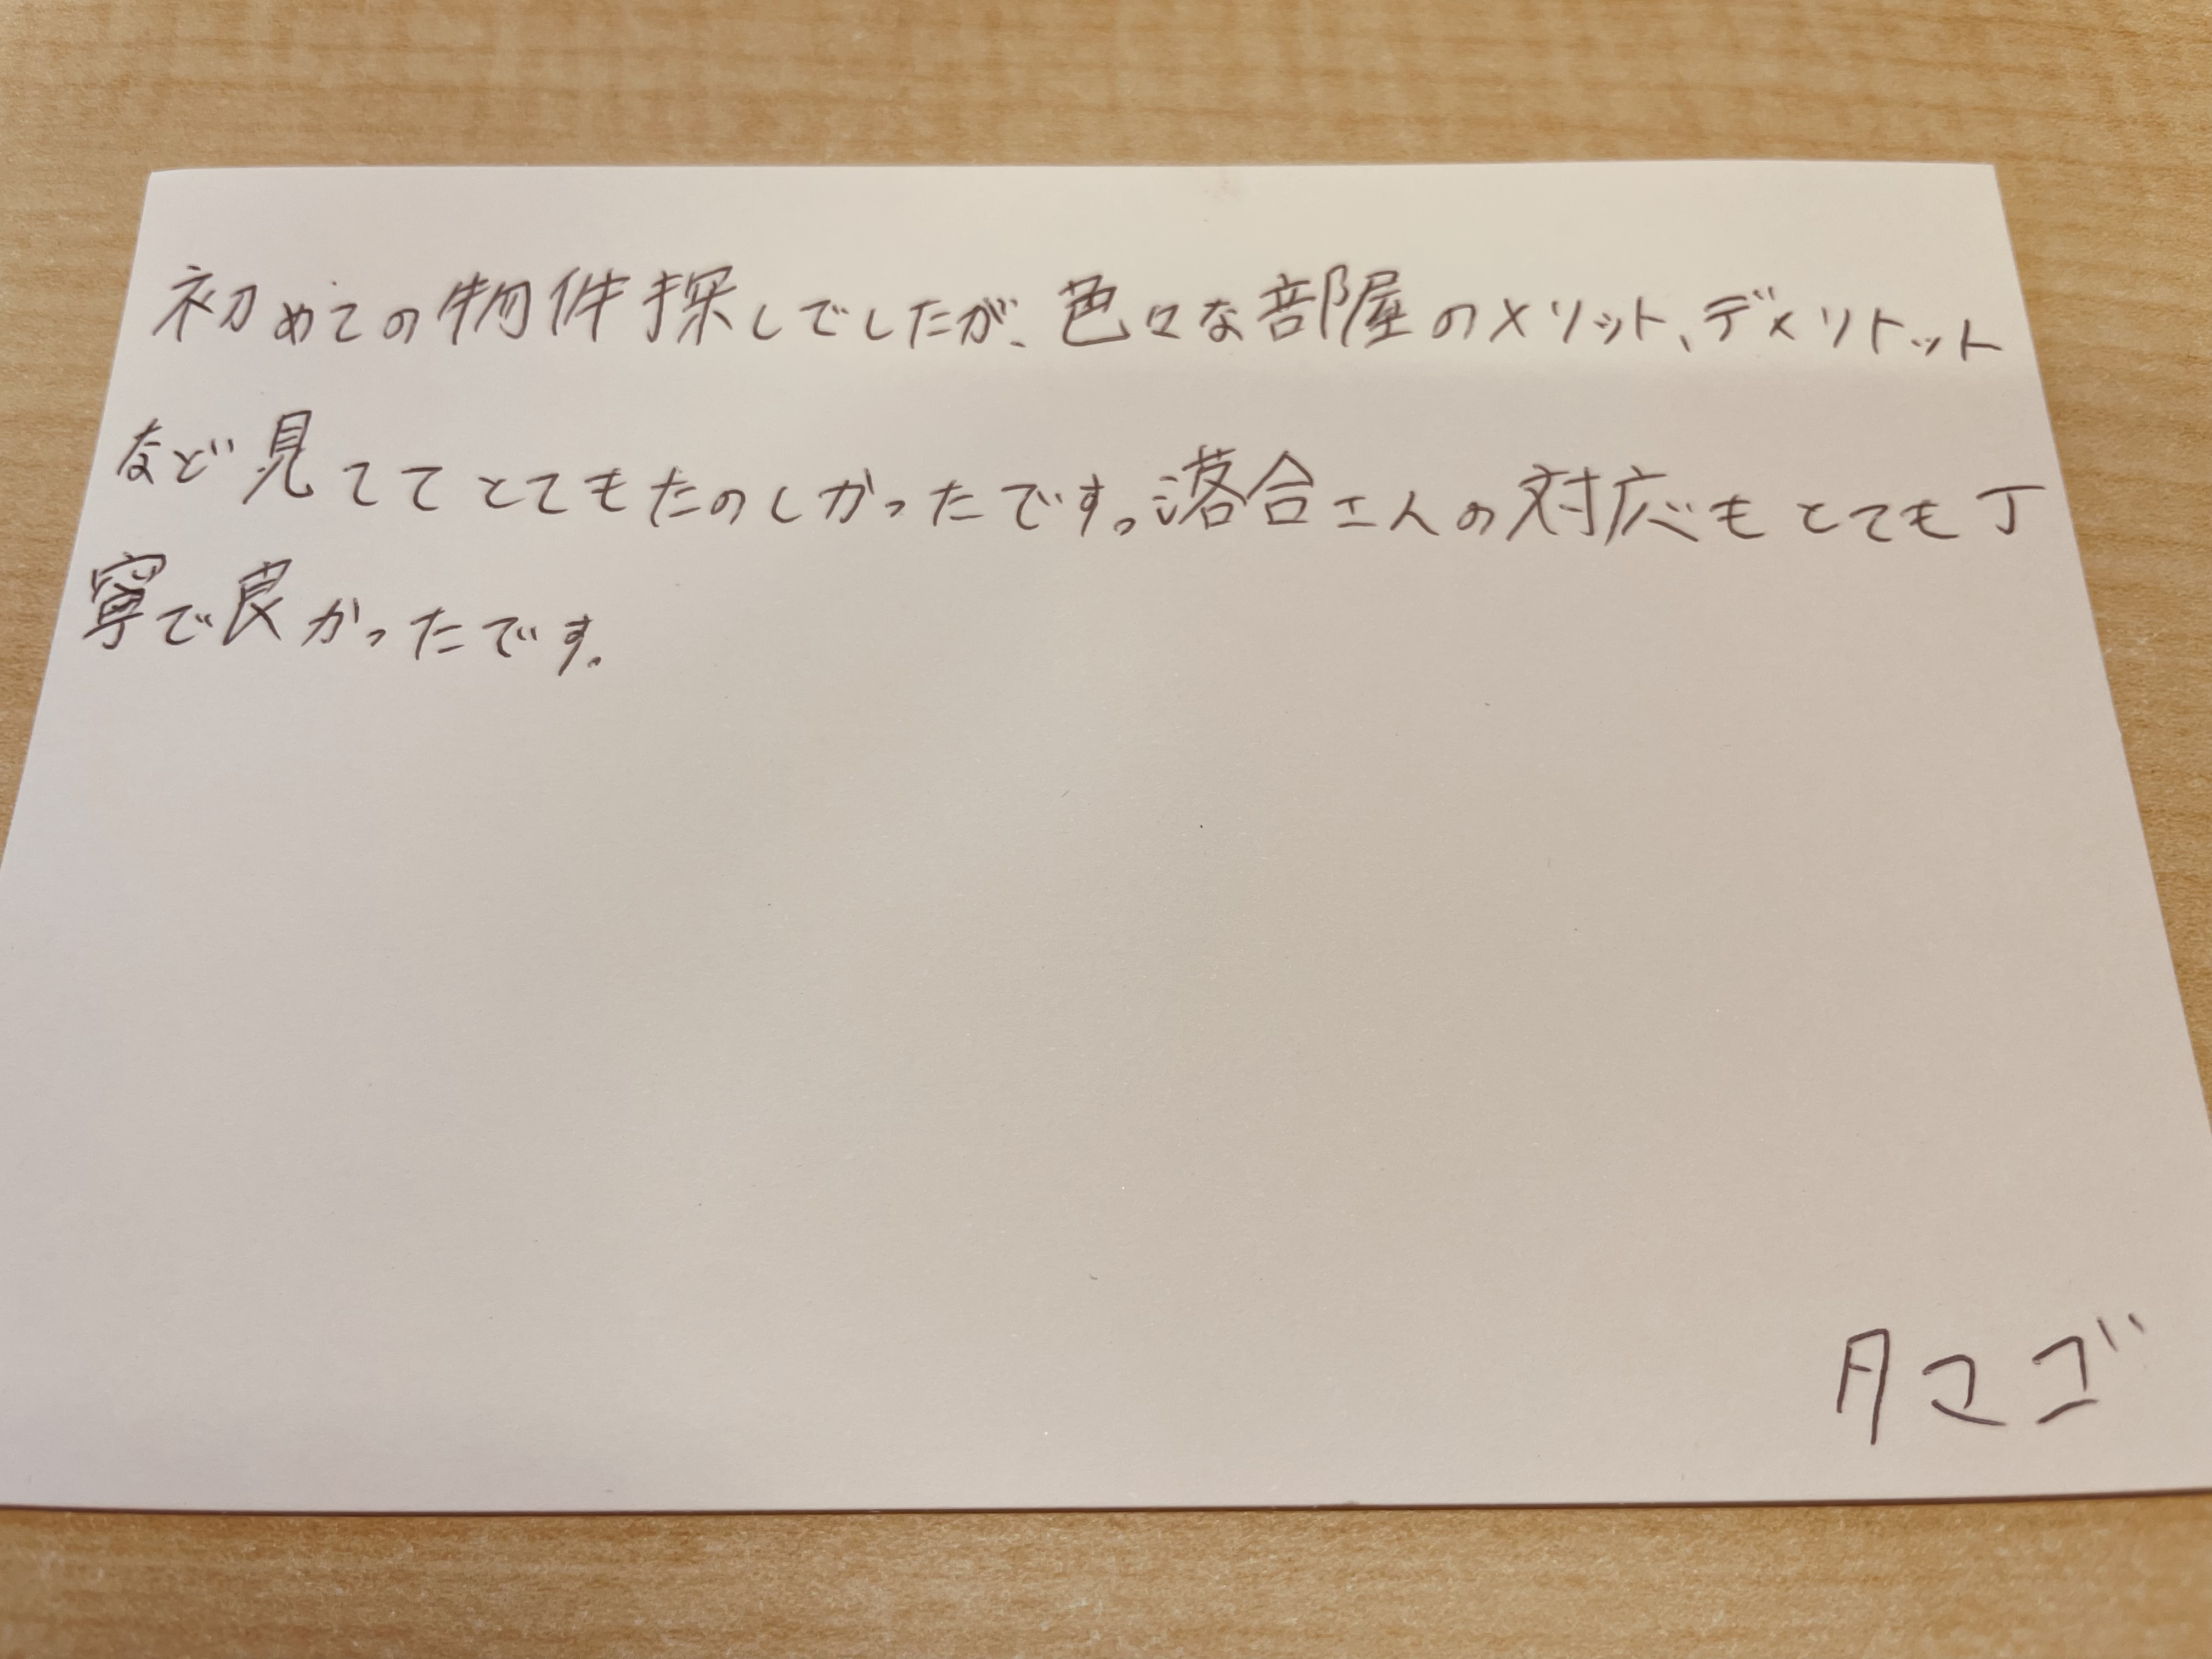 初めての物件探しでしたが、色々な部屋のメリット、デメリトット
など見ててとてもたのしかったです。落合さんの対応もとても丁
寧で良かったです。
タマゴ